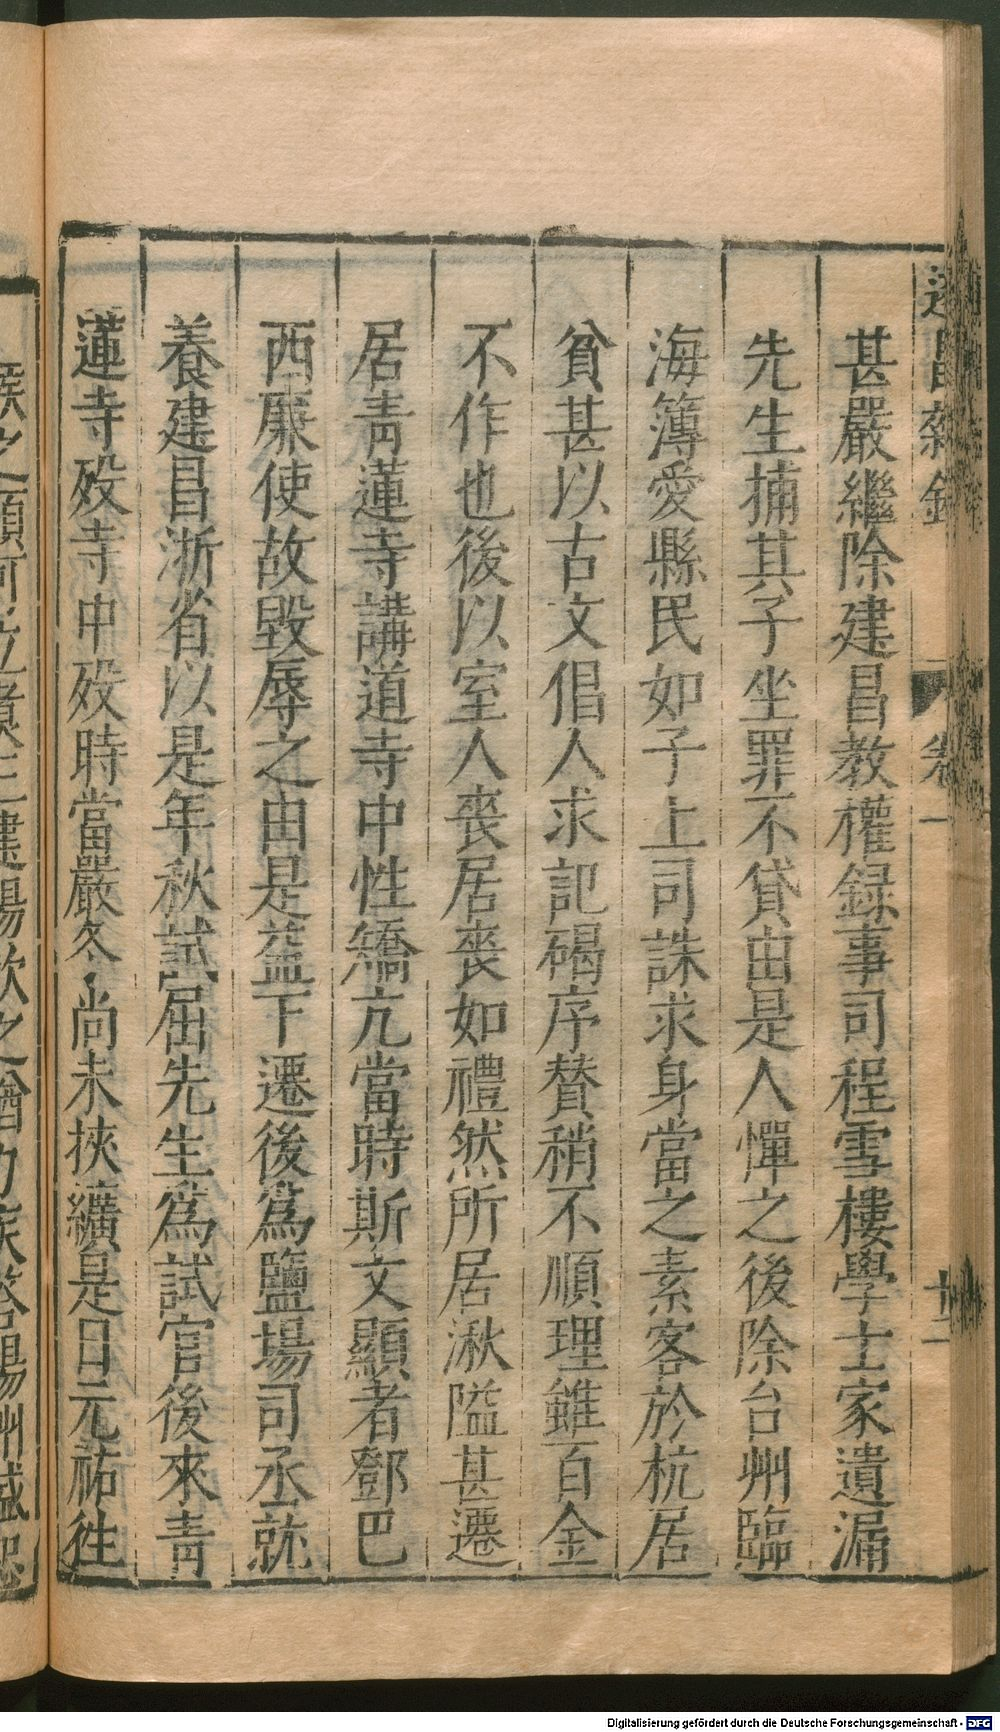 甚嚴繼除建昌教權録事司程雪樓學士家遺漏
先生捕其子坐罪不貸由是人憚之後除台州臨
海簿愛縣民如子上司誅求身當之素客於杭居
貧甚以古文倡人求記碣序賛稍不順理雖百金
不作也後以室人喪居喪如禮然所居湫隘甚遷
居青蓮寺講道寺中性矯亢當時斯文顯者鄧巴
西廉使故毀辱之由是益下遷後爲鹽場司丞就
養建昌浙省以是年秋試屈先生爲試官後來青
蓮寺歿寺中歿時當嚴冬尚未挾纊是日元祐往
卷一
十二
Digitalisierung gefördert durch die Deutsche Forschungsgemeinschaft - DFG